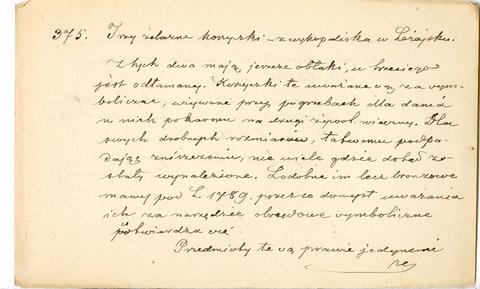 375. Trzy żelazne koszyczki – z wykopaliska w Leżajsku.
Z tych dwa mają jeszcze obłąki, u trzeciego
jest odłamany. Koszyczki te uważane są za sym-
boliczne, używane przy pogrzebach dla dania
w nich pokarmu na drugi żywot wieczny. Dla
swych drobnych rozmiarów, łatwemu podpa-
dając zniszczeniu, nie wiele gdzie dotąd zo-
stały wynalezione. Podobne im lecz bronzowe
mamy pod L. 1789. przez co domysł uważania
ich za narzędzie obrzędowe symboliczne
potwierdza się.
Przedmioty te są prawie jedynemi